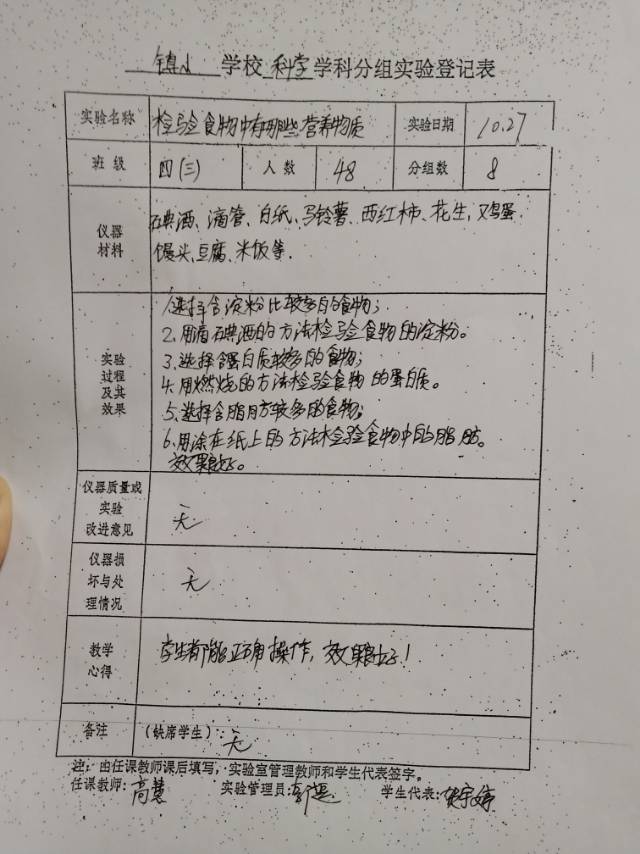 镇小 学校 科学 学科分组实验登记表
实验名称 检验食物中有哪些营养物质 实验日期 10.27
班级 四(三) 人数 48 分组数 8
仪器材料
碘酒、滴管、白纸、马铃薯、西红柿、花生,鸡蛋
馒头、豆腐、米饭等.
实验过程及其效果
1.选择含淀粉比较多的食物;
2.用滴碘酒的方法检验食物的淀粉。
3.选择含蛋白质较多的食物;
4.用燃烧的方法检验食物的蛋白质。
5.选择含脂肪较多的食物;
6.用涂在纸上的方法检验食物中的脂肪。
效果良好。
仪器质量或实验改进意见 无
仪器损坏与处理情况 无
教学心得 学生都能正确操作,效果良好!
备注 (缺席学生):无
注:由任课教师课后填写,实验室管理教师和学生代表签字。
任课教师:高慧 实验管理员: 学生代表: